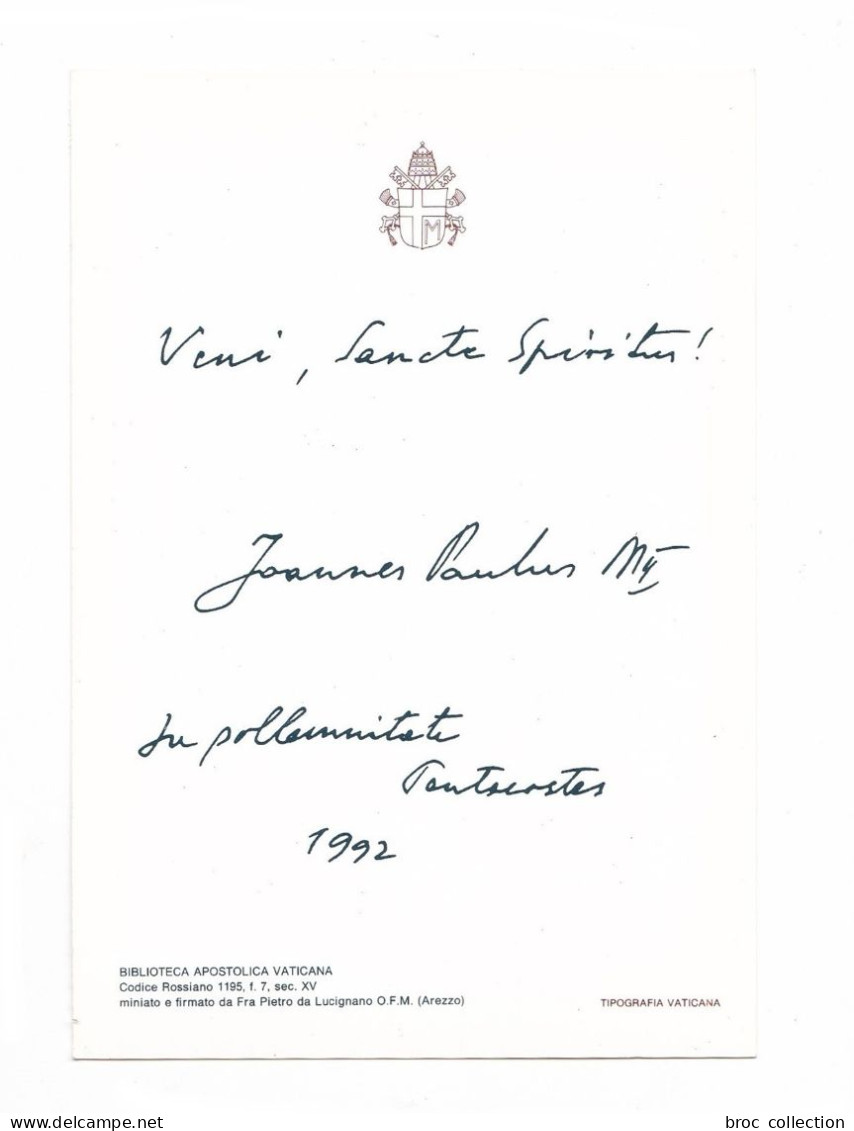 M
Veni, Sancte Spiritus!
Joannes Paulus II
In sollemnitate
Pentecostes
1992
BIBLIOTECA APOSTOLICA VATICANA
Codice Rossiano 1195, f. 7, sec. XV
miniato e firmato da Fra Pietro da Lucignano O.F.M. (Arezzo)
TIPOGRAFIA VATICANA
www.delcampe.net
broc collection